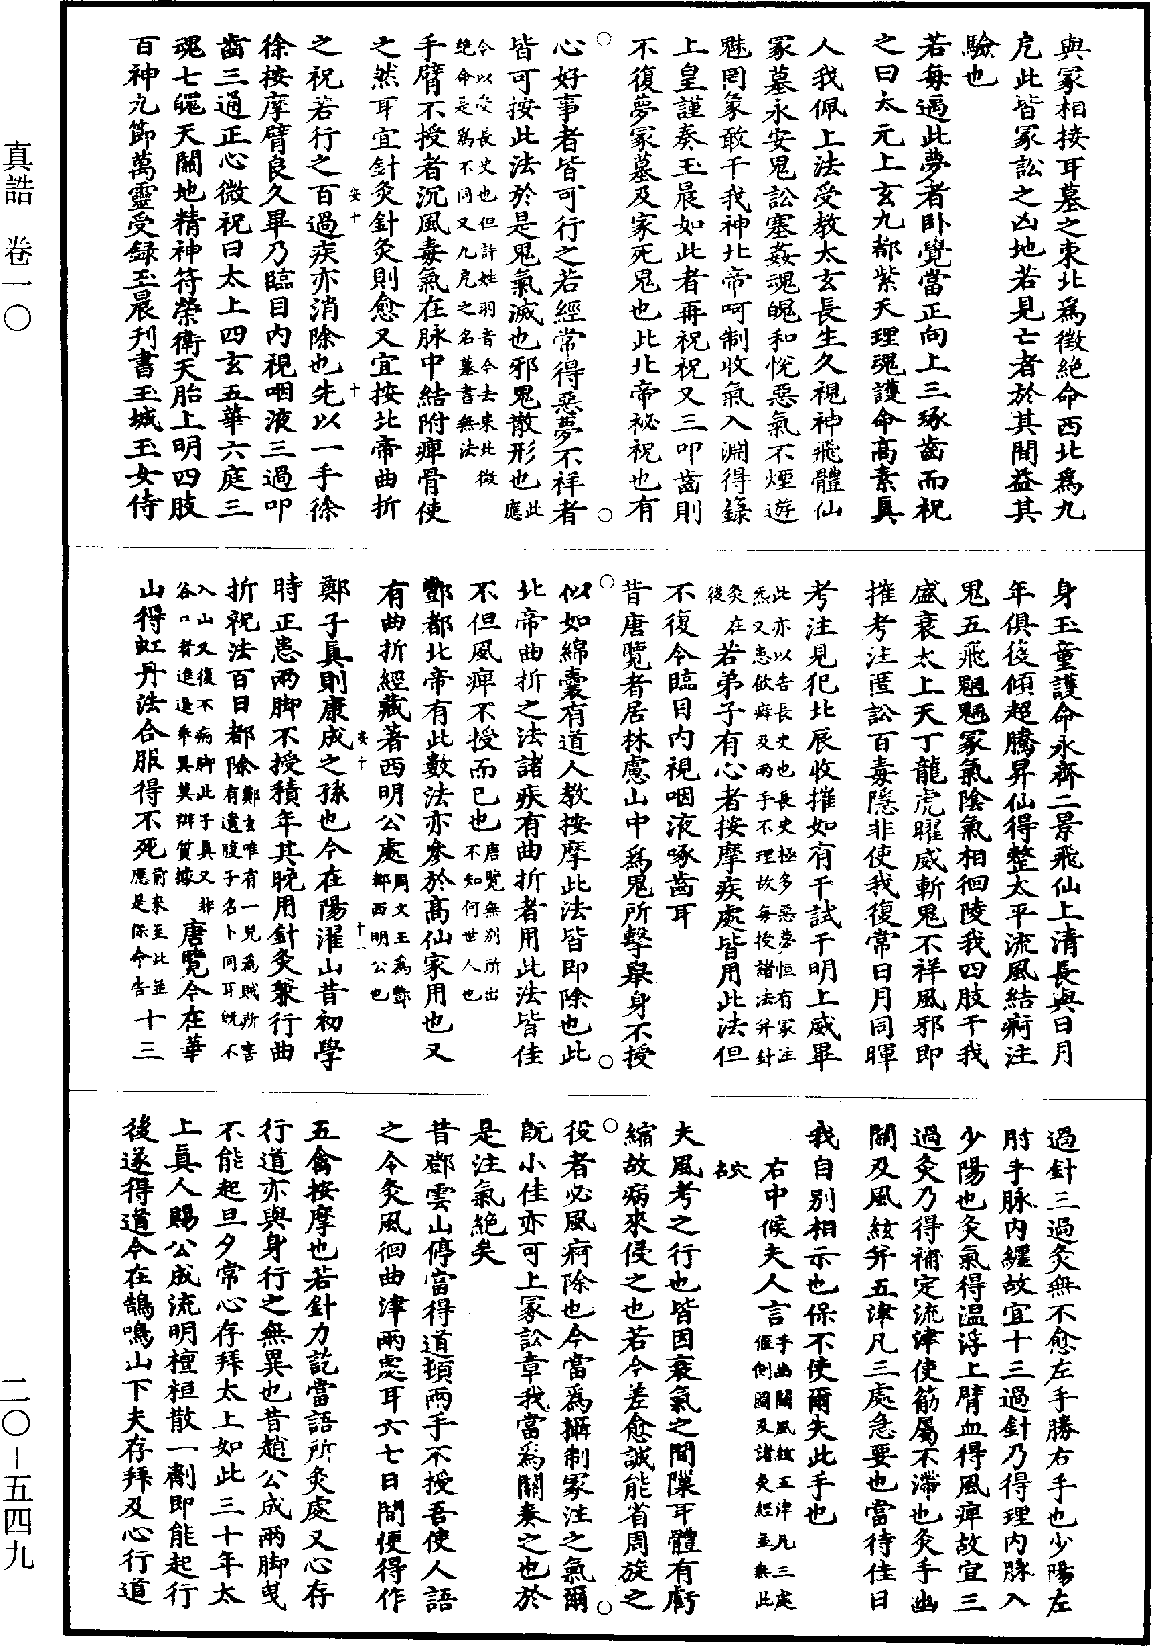 真誥 卷一〇
二〇－五四九
與冢相接耳墓之東北為徵絕命西北為九
厄此皆冢訟之凶地若見亡者於其間益其
驗也
若每遇此夢者臥覺當正向上三琢齒而祝
之曰太元上玄九都紫天理魂護命高素真
人我佩上法受教太玄長生久視神飛體仙
冢墓永安鬼訟塞姦魂魄和悅惡氣不煙遊
魅罔象敢干我神北帝呵制收氣入淵得錄
上皇謹奏玉晨如此者再祝祝又三叩齒則
不復夢冢墓及家死鬼也此北帝祕祝也有
心好事者皆可行之若經常得惡夢不祥者
皆可按此法於是鬼氣滅也邪鬼散形也此應
今以受長史也但許姓羽音今去來此徵
絕命是為不同又九厄之名墓書無法
手臂不授者沉風毒氣在脉中結附痺骨使
之然耳宜針灸針灸則愈又宜按北帝曲折
之祝若行之百過疾亦消除也先以一手徐
徐按摩臂良久畢乃臨目內視咽液三過叩
齒三通正心微祝曰太上四玄五華六庭三
魂七魄天關地精神符榮衛天胎上明四肢
百神九節萬靈受錄玉晨刊書玉城玉女侍
身玉童護命永齊二景飛仙上清長與日月
年俱後傾超騰昇仙得整太平流風結痾注
鬼五飛魍魎冢氣陰氣相徊陵我四肢干我
盛衰太上天丁龍虎曜威斬鬼不祥風邪即
摧考注匿訟百毒隱非使我復常日月同暉
考注見犯北辰收摧如有干試干明上威畢
此亦以告長史也長史極多惡夢恒有冢注
炁又患飲癖及兩手不理故每授諸法并針
灸在後
若弟子有心者按摩疾處皆用此法但
不復令臨目內視咽液啄齒耳
昔唐覽者居林慮山中為鬼所擊舉身不授
似如綿囊有道人教按摩此法皆即除也此
北帝曲折之法諸疾有曲折者用此法皆佳
不但風痺不授而已也唐覽無別所出不知何世人也
酆都北帝有此數法亦參於高仙家用也又
有曲折經藏著西明公處周文王為酆都西明公也
鄭子真則康成之孫也今在陽濯山昔初學
時正患兩脚不授積年其晚用針灸兼行曲
折祝法百日都除鄭玄唯有一兒為賊所害有遺腹子名小同耳既不
入山又復不病脚此子真又非
谷口者進退乖異莫辯質據
唐覽今在華
山得虹丹法合服得不死前來至此並應是保命告十三
過針三過灸無不愈左手勝右手也少陽左
肘手脉內纏故宜十三過針乃得理內脉入
少陽也灸氣得溫浮上臂血得風痺故宜三
過灸乃得補定流津使筋屬不滯也灸手幽
關及風絃并五津凡三處急要也當待佳日
我自別相示也保不使爾失此手也
右中候夫人言手幽關風絃五津凡三處偃側圖及諸灸經並無此
穴
夫風考之行也皆因衰氣之間隟耳體有虧
縮故病來侵之也若今差愈誠能省周旋之
役者必風痾除也今當為攝制冢注之氣爾
既小佳亦可上冢訟章我當為關奏之也於
是注氣絕矣
昔鄧雲山停當得道頓兩手不授吾使人語
之令灸風徊曲津兩處耳六七日間便得作
五禽按摩也若針力訖當語所灸處又心存
行道亦與身行之無異也昔趙公成兩脚曳
不能起旦夕常心存拜太上如此三十年太
上真人賜公成流明檀桓散一劑即能起行
後遂得道今在鵠鳴山下夫存拜及心行道